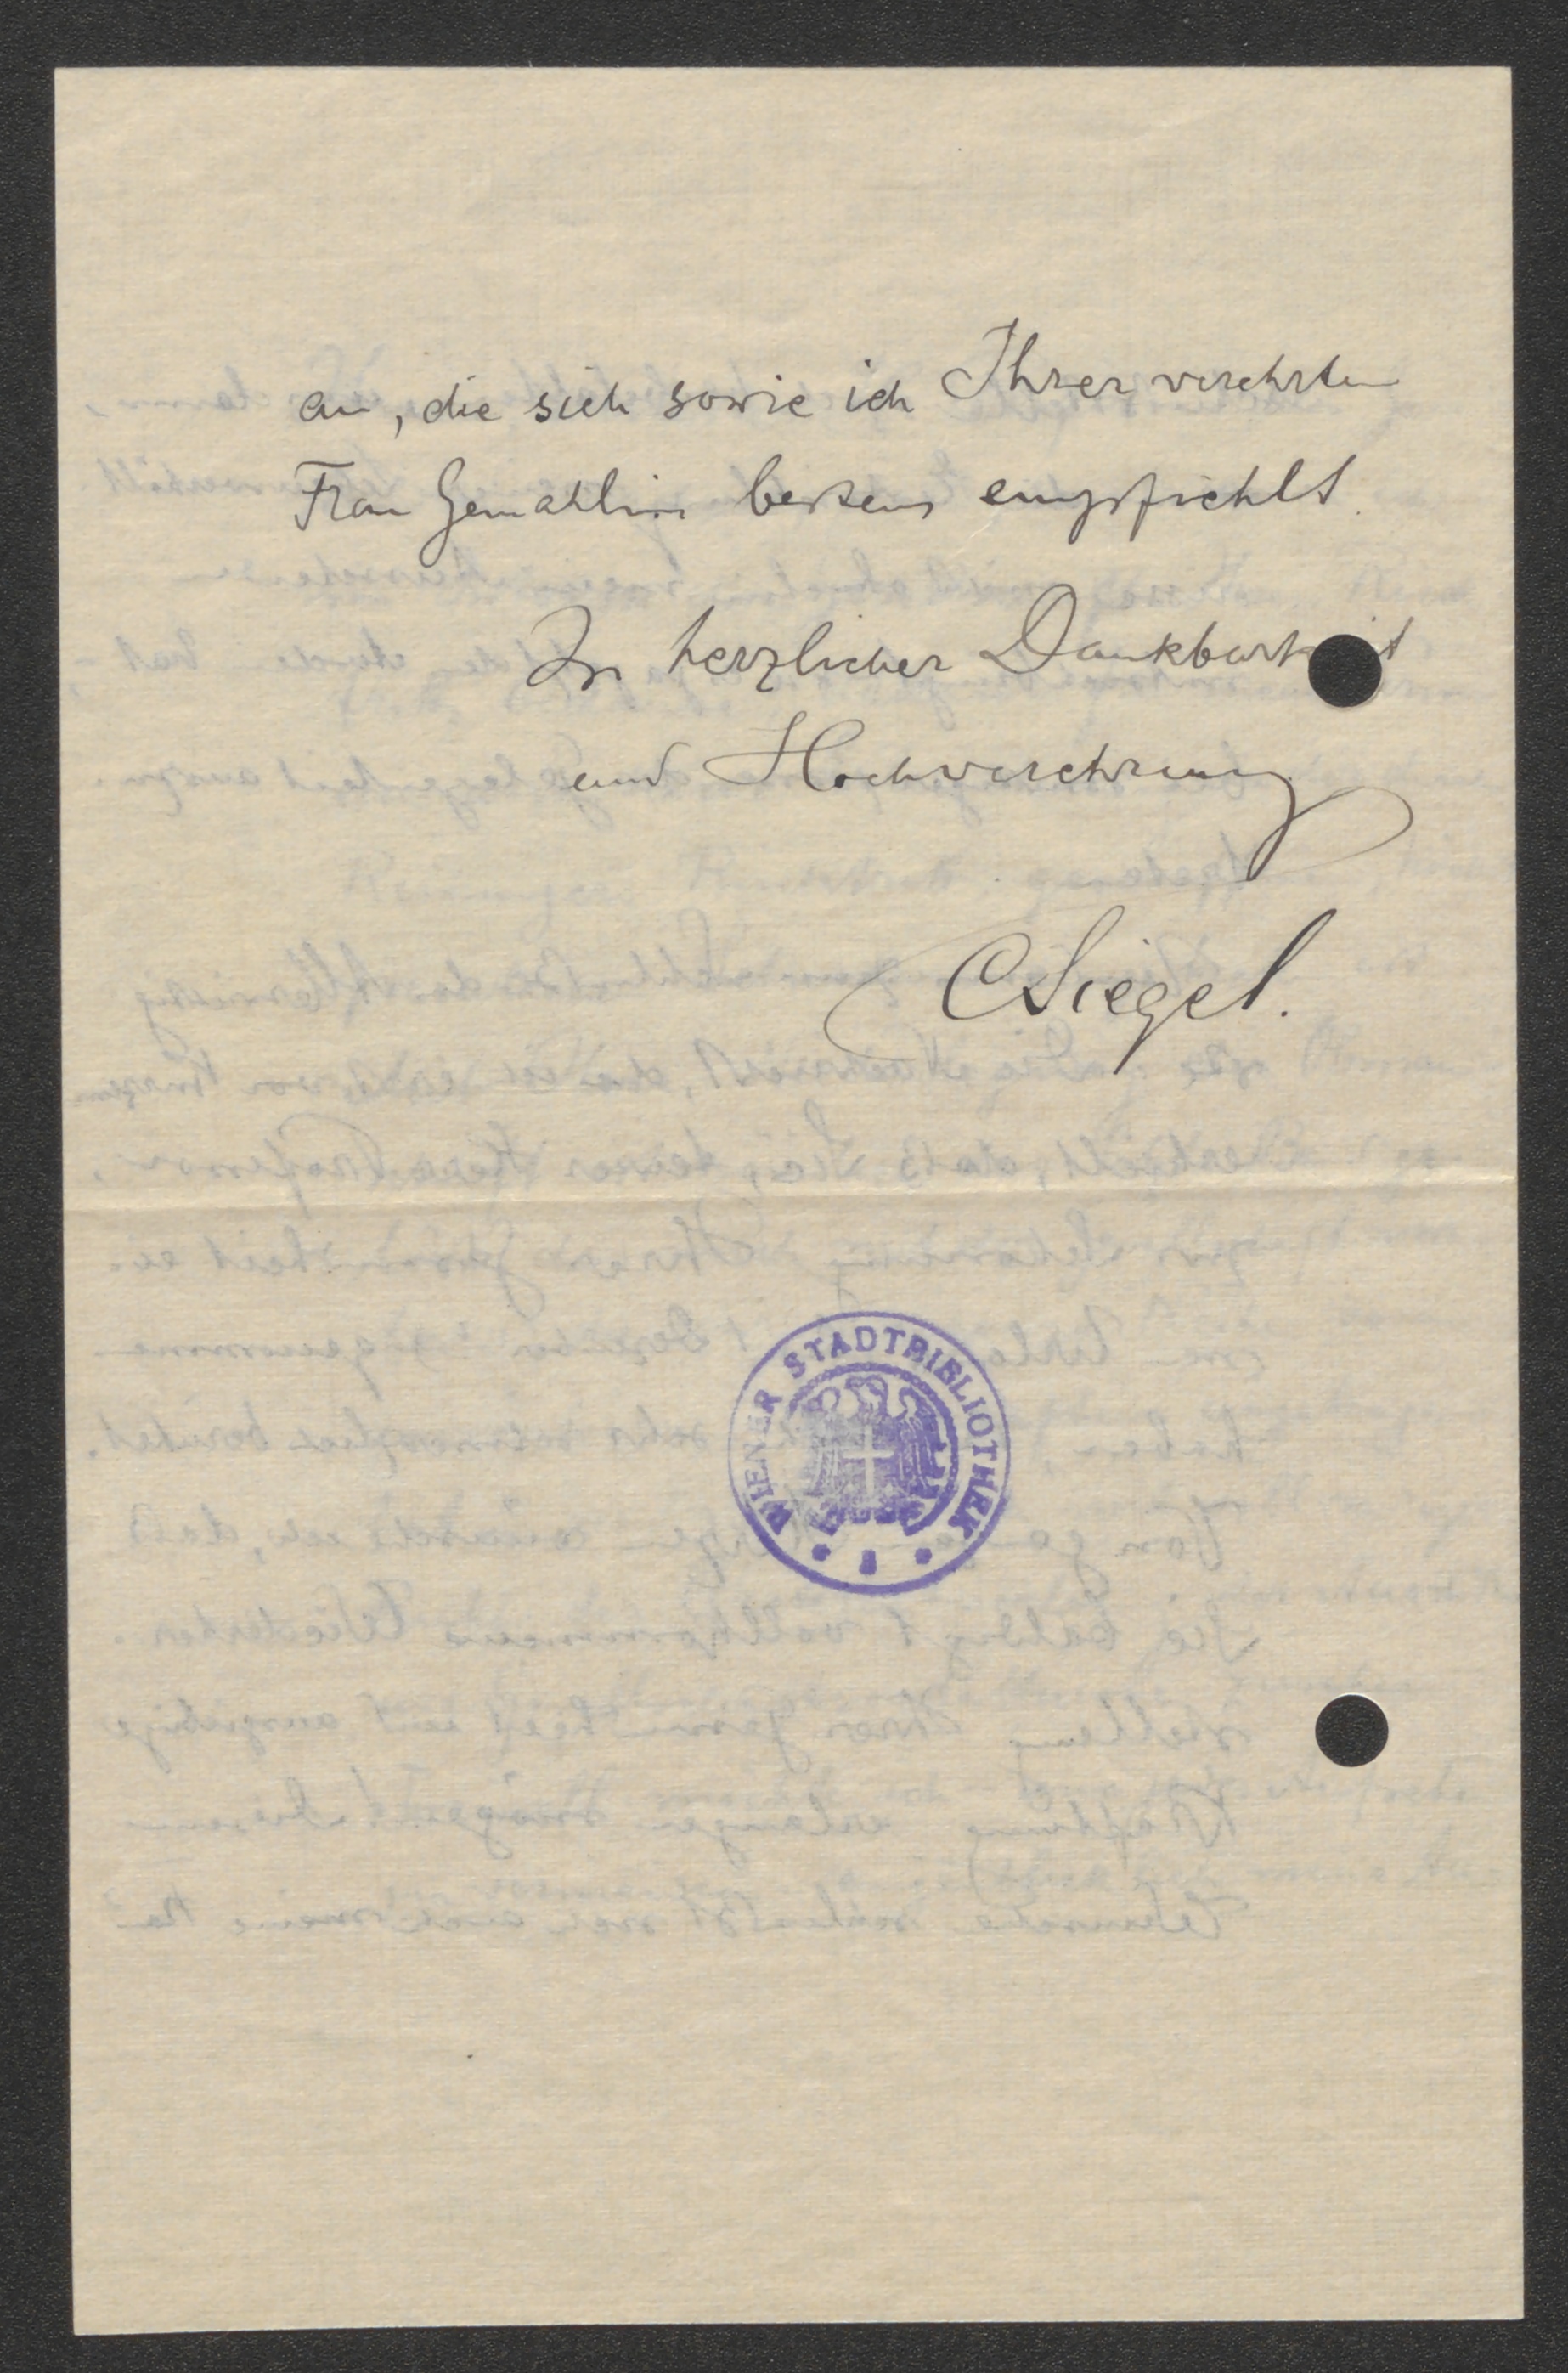 an, die sich sowie ich Ihrer verehrten
Frau Gemahlin bestens empfiehlt.
In herzlicher Dankbarkeit
und Hochverehrung
CSiegel.
WIENER STADTBIBLIOTHEK